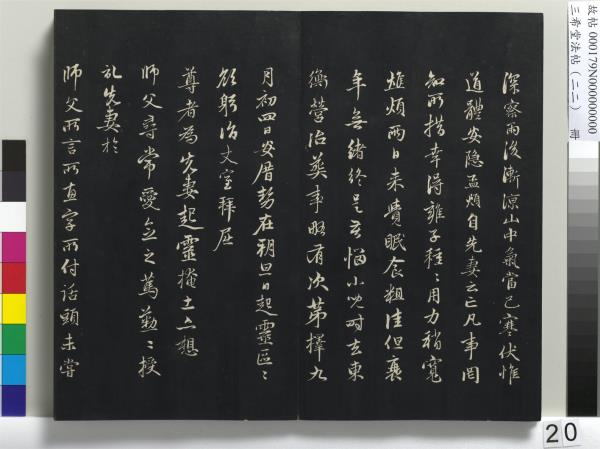 故帖 000179N000000000
三希堂法帖（二二） 冊
深察雨後漸涼山中氣當已寒伏惟
道體安隱孟頫自先妻云亡凡事罔
知所措幸得雍子種〻用力稍寬
燋煩兩日來覺眠食粗佳但衰
年無緒終是苦惱小兒時去東
衡營治葬事略有次第擇九
月初四日安厝勢在朔旦日起靈區〻
欲躬詣丈室拜屈
尊者為先妻起靈掩土亦想
師父尋常愛念之篤勤〻授
記先妻於
師父所言所直字所付話頭未嘗
20